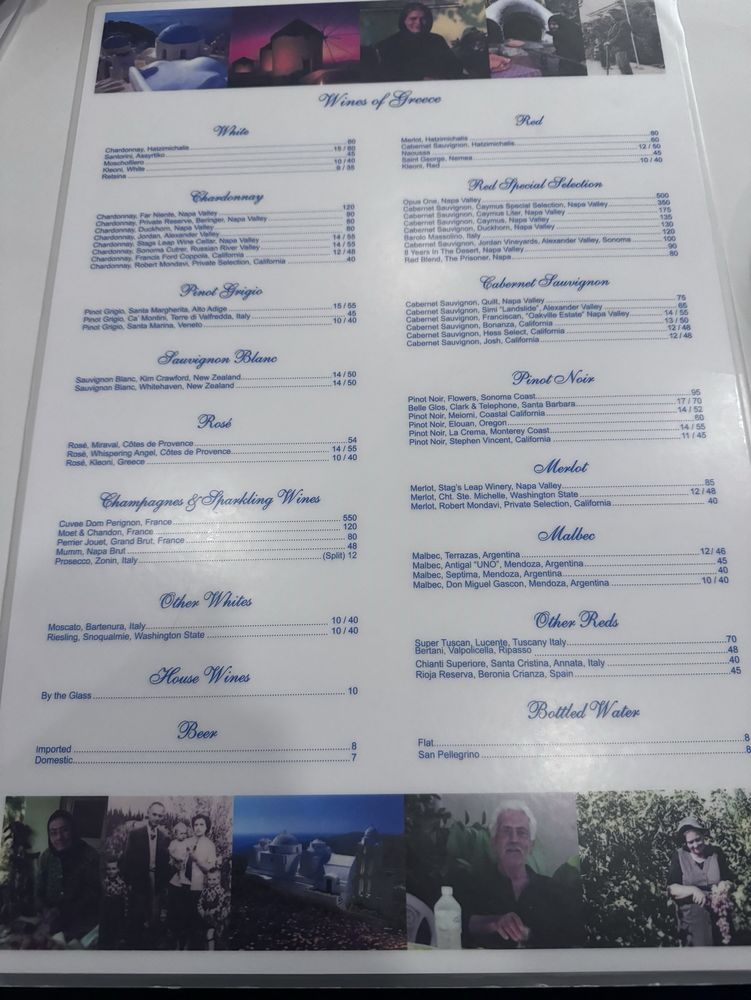 Wines of Greece
White
Chardonnay, Hatzimichalis 60
Santorini, Assyrtiko 15 / 60
Moschofilero 45
Kleoni, White 10 / 40
Retsina 9 / 35
Chardonnay
Chardonnay, Far Niente, Napa Valley 120
Chardonnay, Private Reserve, Beringer, Napa Valley 80
Chardonnay, Duckhorn, Napa Valley 80
Chardonnay, Jordan, Alexander Valley 60
Chardonnay, Stags Leap Wine Cellar, Napa Valley 14 / 55
Chardonnay, Sonoma Cutrer, Russian River Valley 14 / 55
Chardonnay, Francis Ford Coppola, California 12 / 48
Chardonnay, Robert Mondavi, Private Selection, California 40
Pinot Grigio
Pinot Grigio, Santa Margherita, Alto Adige 15 / 55
Pinot Grigio, Ca' Montini, Terre di Valfredda, Italy 45
Pinot Grigio, Santa Marina, Veneto 10 / 40
Sauvignon Blanc
Sauvignon Blanc, Kim Crawford, New Zealand 14 / 50
Sauvignon Blanc, Whitehaven, New Zealand 14 / 50
Rosé
Rosé, Miraval, Côtes de Provence 54
Rosé, Whispering Angel, Côtes de Provence 14 / 55
Rosé, Kleoni, Greece 10 / 40
Champagnes & Sparkling Wines
Cuvee Dom Perignon, France 550
Moet & Chandon, France 120
Perrier Jouet, Grand Brut, France 80
Mumm, Napa Brut 48
Prosecco, Zonin, Italy (Split) 12
Other Whites
Moscato, Bartenura, Italy 10 / 40
Riesling, Snoqualmie, Washington State 10 / 40
House Wines
By the Glass 10
Beer
Imported 8
Domestic 7
Red
Merlot, Hatzimichalis 60
Cabernet Sauvignon, Hatzimichalis 60
Naoussa 12 / 50
Saint George, Nemea 45
Kleoni, Red 10 / 40
Red Special Selection
Opus One, Napa Valley 500
Cabernet Sauvignon, Caymus Special Selection, Napa Valley 350
Cabernet Sauvignon, Caymus Liter, Napa Valley 175
Cabernet Sauvignon, Caymus, Napa Valley 135
Cabernet Sauvignon, Duckhorn, Napa Valley 130
Barolo Massolino, Italy 120
Cabernet Sauvignon, Jordan Vineyards, Alexander Valley, Sonoma 100
8 Years In The Desert, Napa Valley 90
Red Blend, The Prisoner, Napa 80
Cabernet Sauvignon
Cabernet Sauvignon, Quilt, Napa Valley 75
Cabernet Sauvignon, Simi "Landslide", Alexander Valley 65
Cabernet Sauvignon, Franciscan, "Oakville Estate" Napa Valley 14 / 55
Cabernet Sauvignon, Bonanza, California 13 / 50
Cabernet Sauvignon, Hess Select, California 12 / 48
Cabernet Sauvignon, Josh, California 12 / 48
Pinot Noir
Pinot Noir, Flowers, Sonoma Coast 95
Belle Glos, Clark & Telephone, Santa Barbara 17 / 70
Pinot Noir, Meiomi, Coastal California 14 / 52
Pinot Noir, Elouan, Oregon 60
Pinot Noir, La Crema, Monterey Coast 14 / 55
Pinot Noir, Stephen Vincent, California 11 / 45
Merlot
Merlot, Stag's Leap Winery, Napa Valley 85
Merlot, Cht. Ste. Michelle, Washington State 12 / 48
Merlot, Robert Mondavi, Private Selection, California 40
Malbec
Malbec, Terrazas, Argentina 12/ 46
Malbec, Antigal "UNO", Mendoza, Argentina 45
Malbec, Septima, Mendoza, Argentina 40
Malbec, Don Miguel Gascon, Mendoza, Argentina 10 / 40
Other Reds
Super Tuscan, Lucente, Tuscany Italy 70
Bertani, Valpolicella, Ripasso 48
Chianti Superiore, Santa Cristina, Annata, Italy 40
Rioja Reserva, Beronia Crianza, Spain 45
Bottled Water
Flat 8
San Pellegrino 8